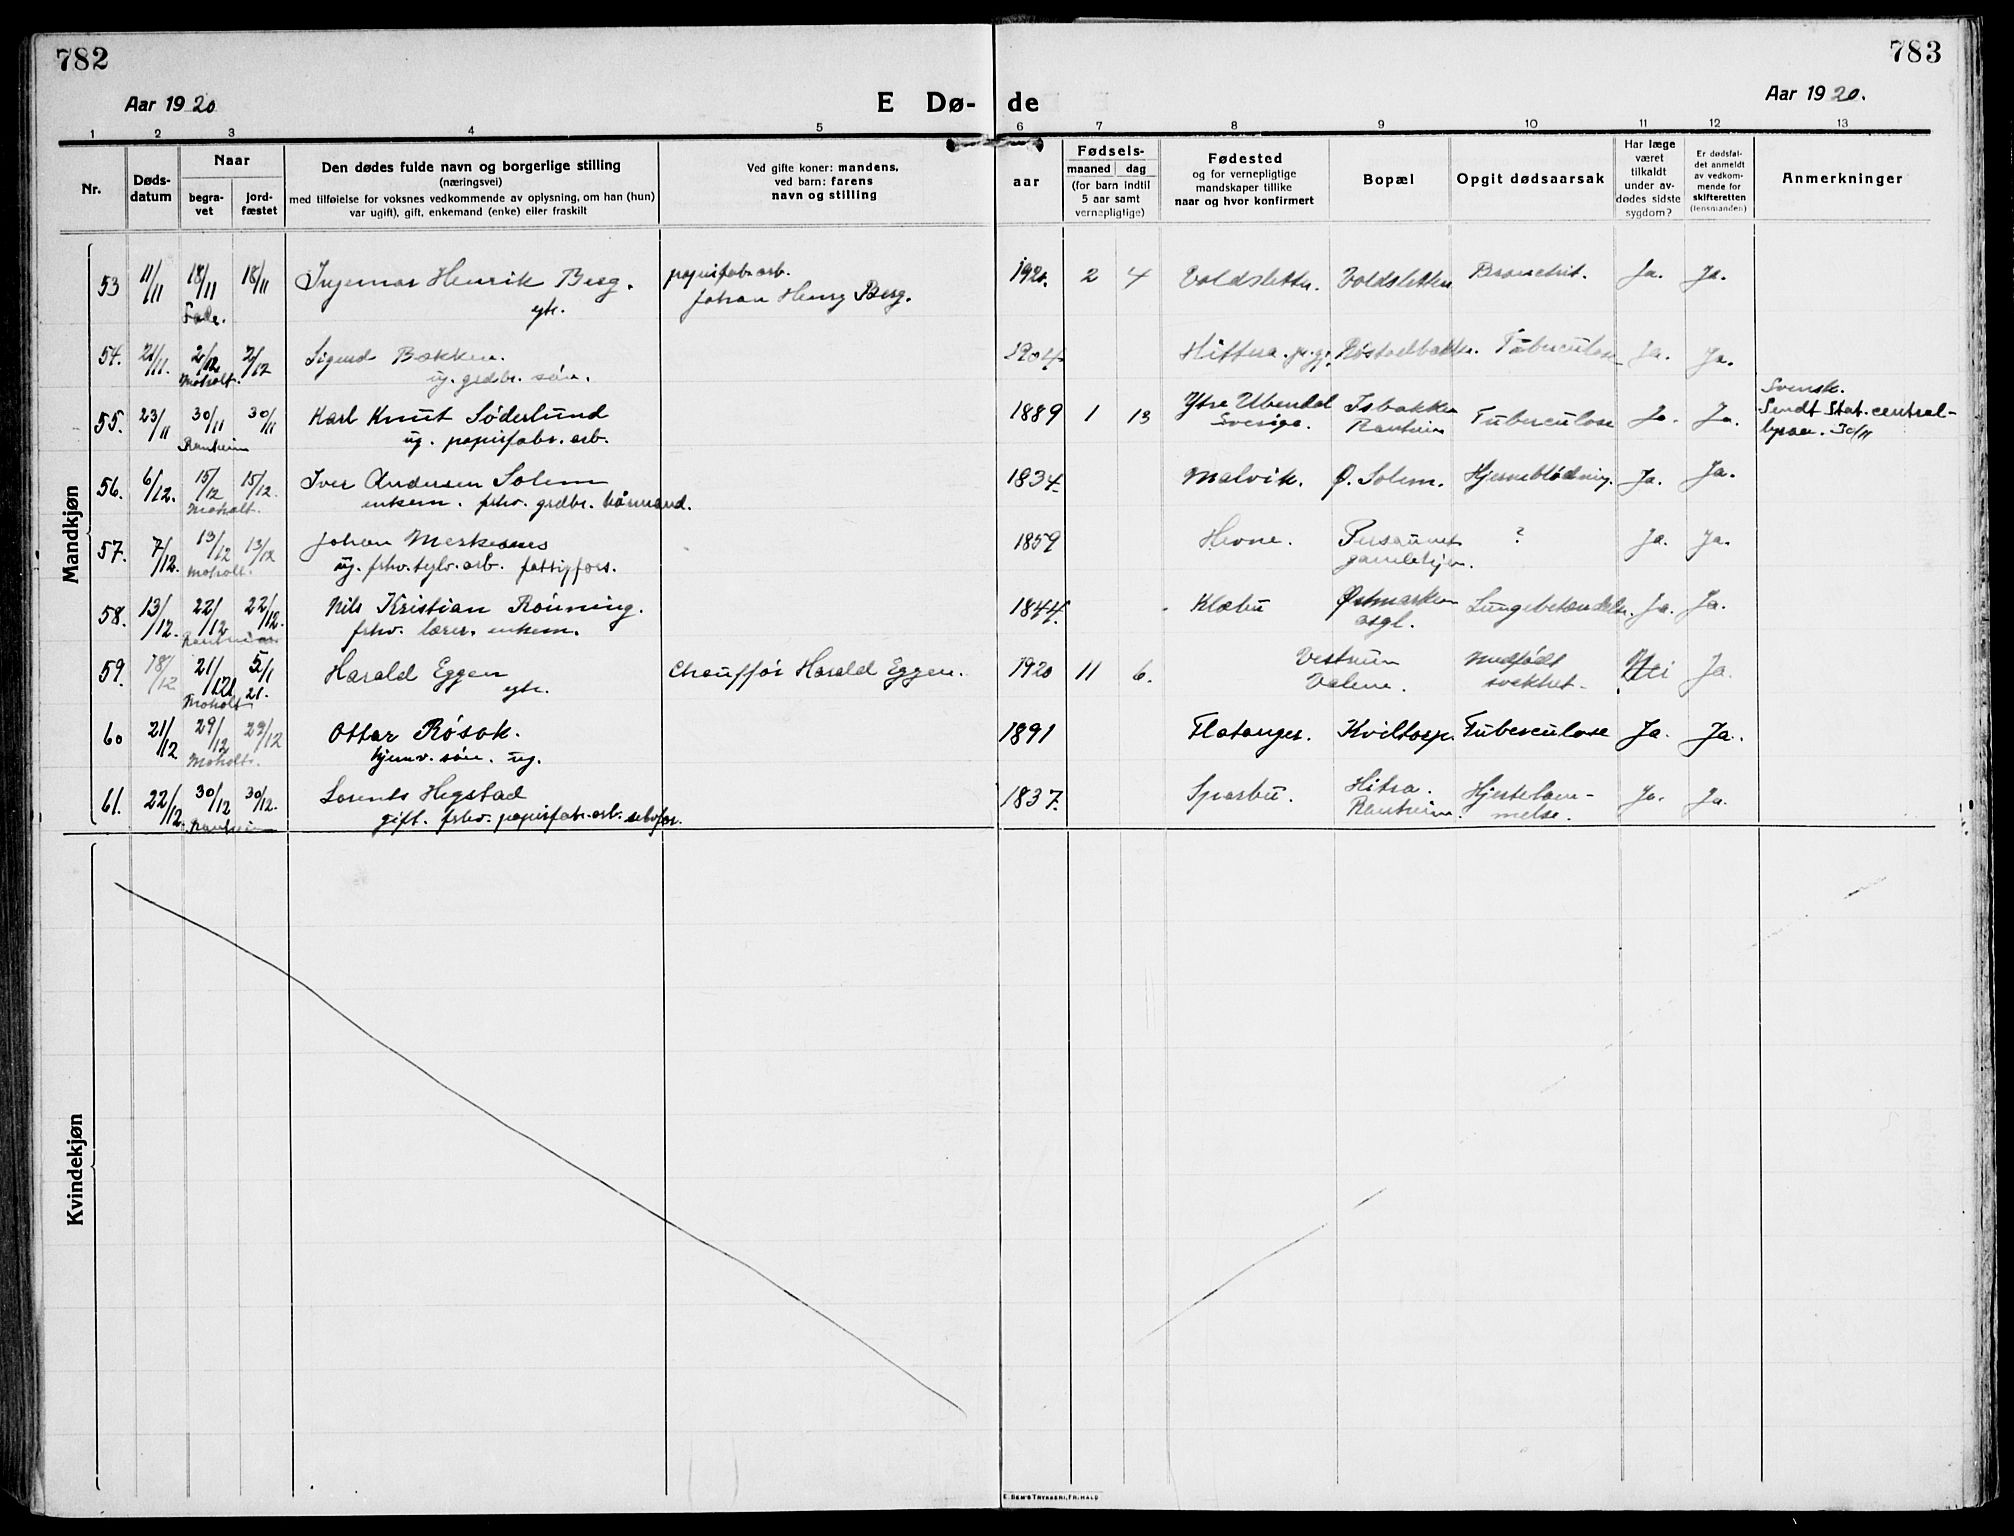 782
783
Aar 1920
E Dø-
de
Aar 1920.
1 2 3 4 5 6 7 8 9 10 11 12 13
Nr.
Døds-
datum
Naar
begra-
vet
jord-
fæstet
Den dødes fulde navn og borgerlige stilling
(næringsvei)
med tilføielse for voksnes vedkommende av oplysning, om han (hun)
var ugift), gift, enkemand (enke) eller fraskilt
Ved gifte koner: mandens,
ved barn: farens
navn og stilling
aar
Fødsels-
maaned dag
(for barn indtil
5 aar samt
vernepligtige)
Fødested
og for vernepligtige
mandskaper tillike
naar og hvor konfirmert
Bopæl
Opgit dødsaarsak
Har læge
været
tilkaldt
under av-
dødes sidste
sygdom?
Er dødsfal-
det anmeldt
av vedkom-
mende for
skifteretten
(lensmanden)
Anmerkninger
Mandkjøn
53 11/11 18/11 18/11 Ingemar Henrik Berg. papirfabr.arb. 1920. 2 4 Voldsletten. Voldsletten Bronchit. Ja. Ja.
Johan Henry Berg.
egte.
54. 21/11. 2/12 2/12 Sigurd Bækken. 1904 Hittera. Tuberculose Ja. Ja.
Moholt. ug. grdbr. søn.
Svensk.
55. 23/11 30/11 30/11 Karl Knut Søderlund 1889 1 13 Ytre Isbakken Tuberculose Ja. Ja. Sendt Stat. central-
Ranheim ug. papirfabr. arb. Sverige. Ranheim byraa. 30/11
56. 6/12. 15/12 15/12. Iver Andersen Solem 1834. Malvik. Ø. Solem. Hjerneblødning. Ja. Ja.
Moholt. enkem. frhv. grdbr. kårmand.
57. 7/12. 13/12 13/12 Johan 1859 Hevne. Persaunet ? Ja. Ja.
Moholt. ug. frhv. arb. fattigfors. gamlehjem.
58. 13/12. 22/12 22/12. Nils Kristian Rønning. 1844. Klæbu Østmarken Lungebetændelse. Ja. Ja.
Ranheim frhv. lærer. enkem. asgl.
59. 18/12 21/12 5/1 21. Harald Eggen Chauffør Harald Eggen. 1920 11 6. Vestrum Medfødt Nei Ja.
Moholt egte. Valene. svakhet.
60 21/12 29/12 29/12 Ottar Røsok. 1891 Flatanger. Kviltorp. Tuberculose Ja. Ja.
Moholt. hjemv. søn. ug.
61. 22/12 30/12 30/12. Lorents Hegstad 1837. Sparbu. Hitra. Hjertelam- Ja. Ja.
Ranheim gift. frhv. papirfabr.arb. selvfor. Ranheim. melse.
Kvindekjøn
E. SEM'S TRYKKERI, FR.HALD